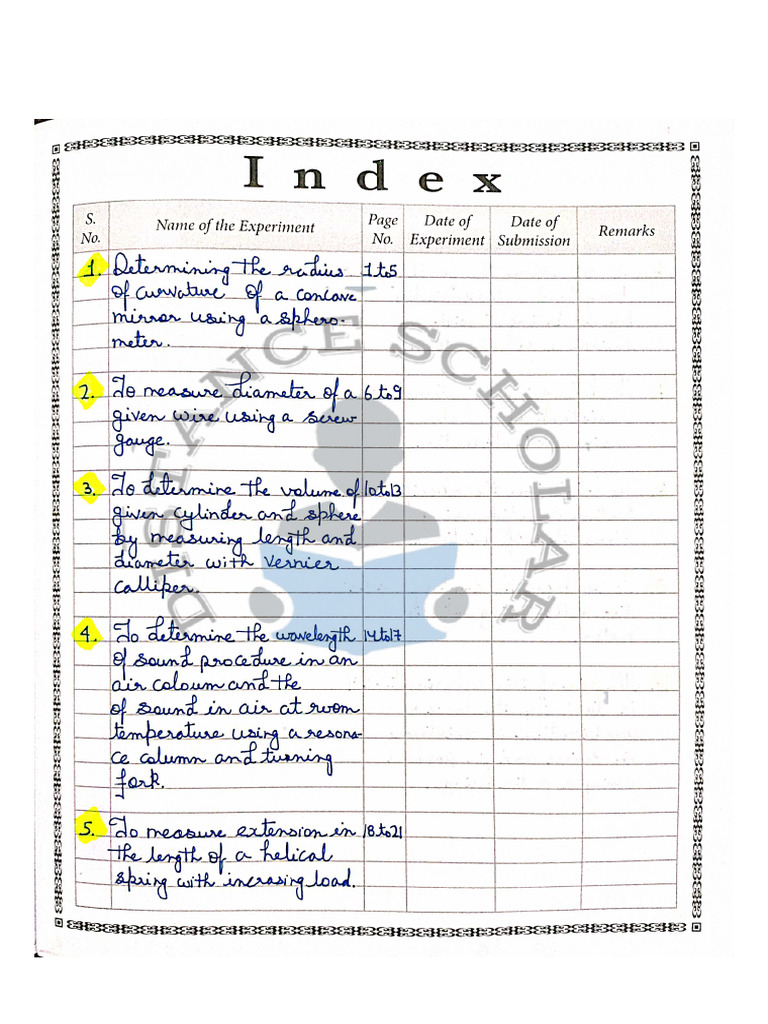 Index
S. No. Name of the Experiment Page No. Date of Experiment Date of Submission Remarks
1. Determining the radius 1 to 5
of curvature of a concave
mirror using a sphero-
meter.
2. To measure diameter of a 6 to 9
given wire using a screw
gauge.
3. To determine the volume of 10 to 13
given cylinder and sphere
by measuring length and
diameter with Vernier
calliper.
4. To determine the wavelength 14 to 17
of sound procedure in an
air coloum and the
of sound in air at room
temperature using a resona-
ce column and turning
fork.
5. To measure extension in 18 to 21
the length of a helical
spring with incrasing load.
DISTANCE SCHOLAR